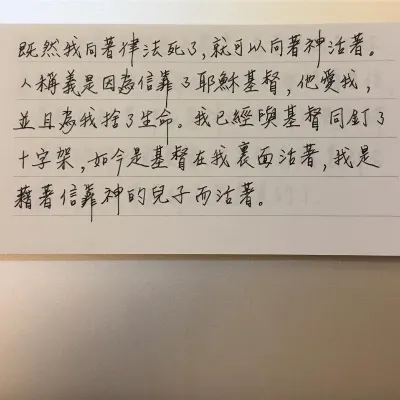 既然我向著律法死了,就可以向著神活著。
人稱義是因為信靠了耶穌基督,他愛我,
並且為我捨了生命。我已經與基督同釘了
十字架,如今是基督在我裏面活著,我是
藉著信靠神的兒子而活著。